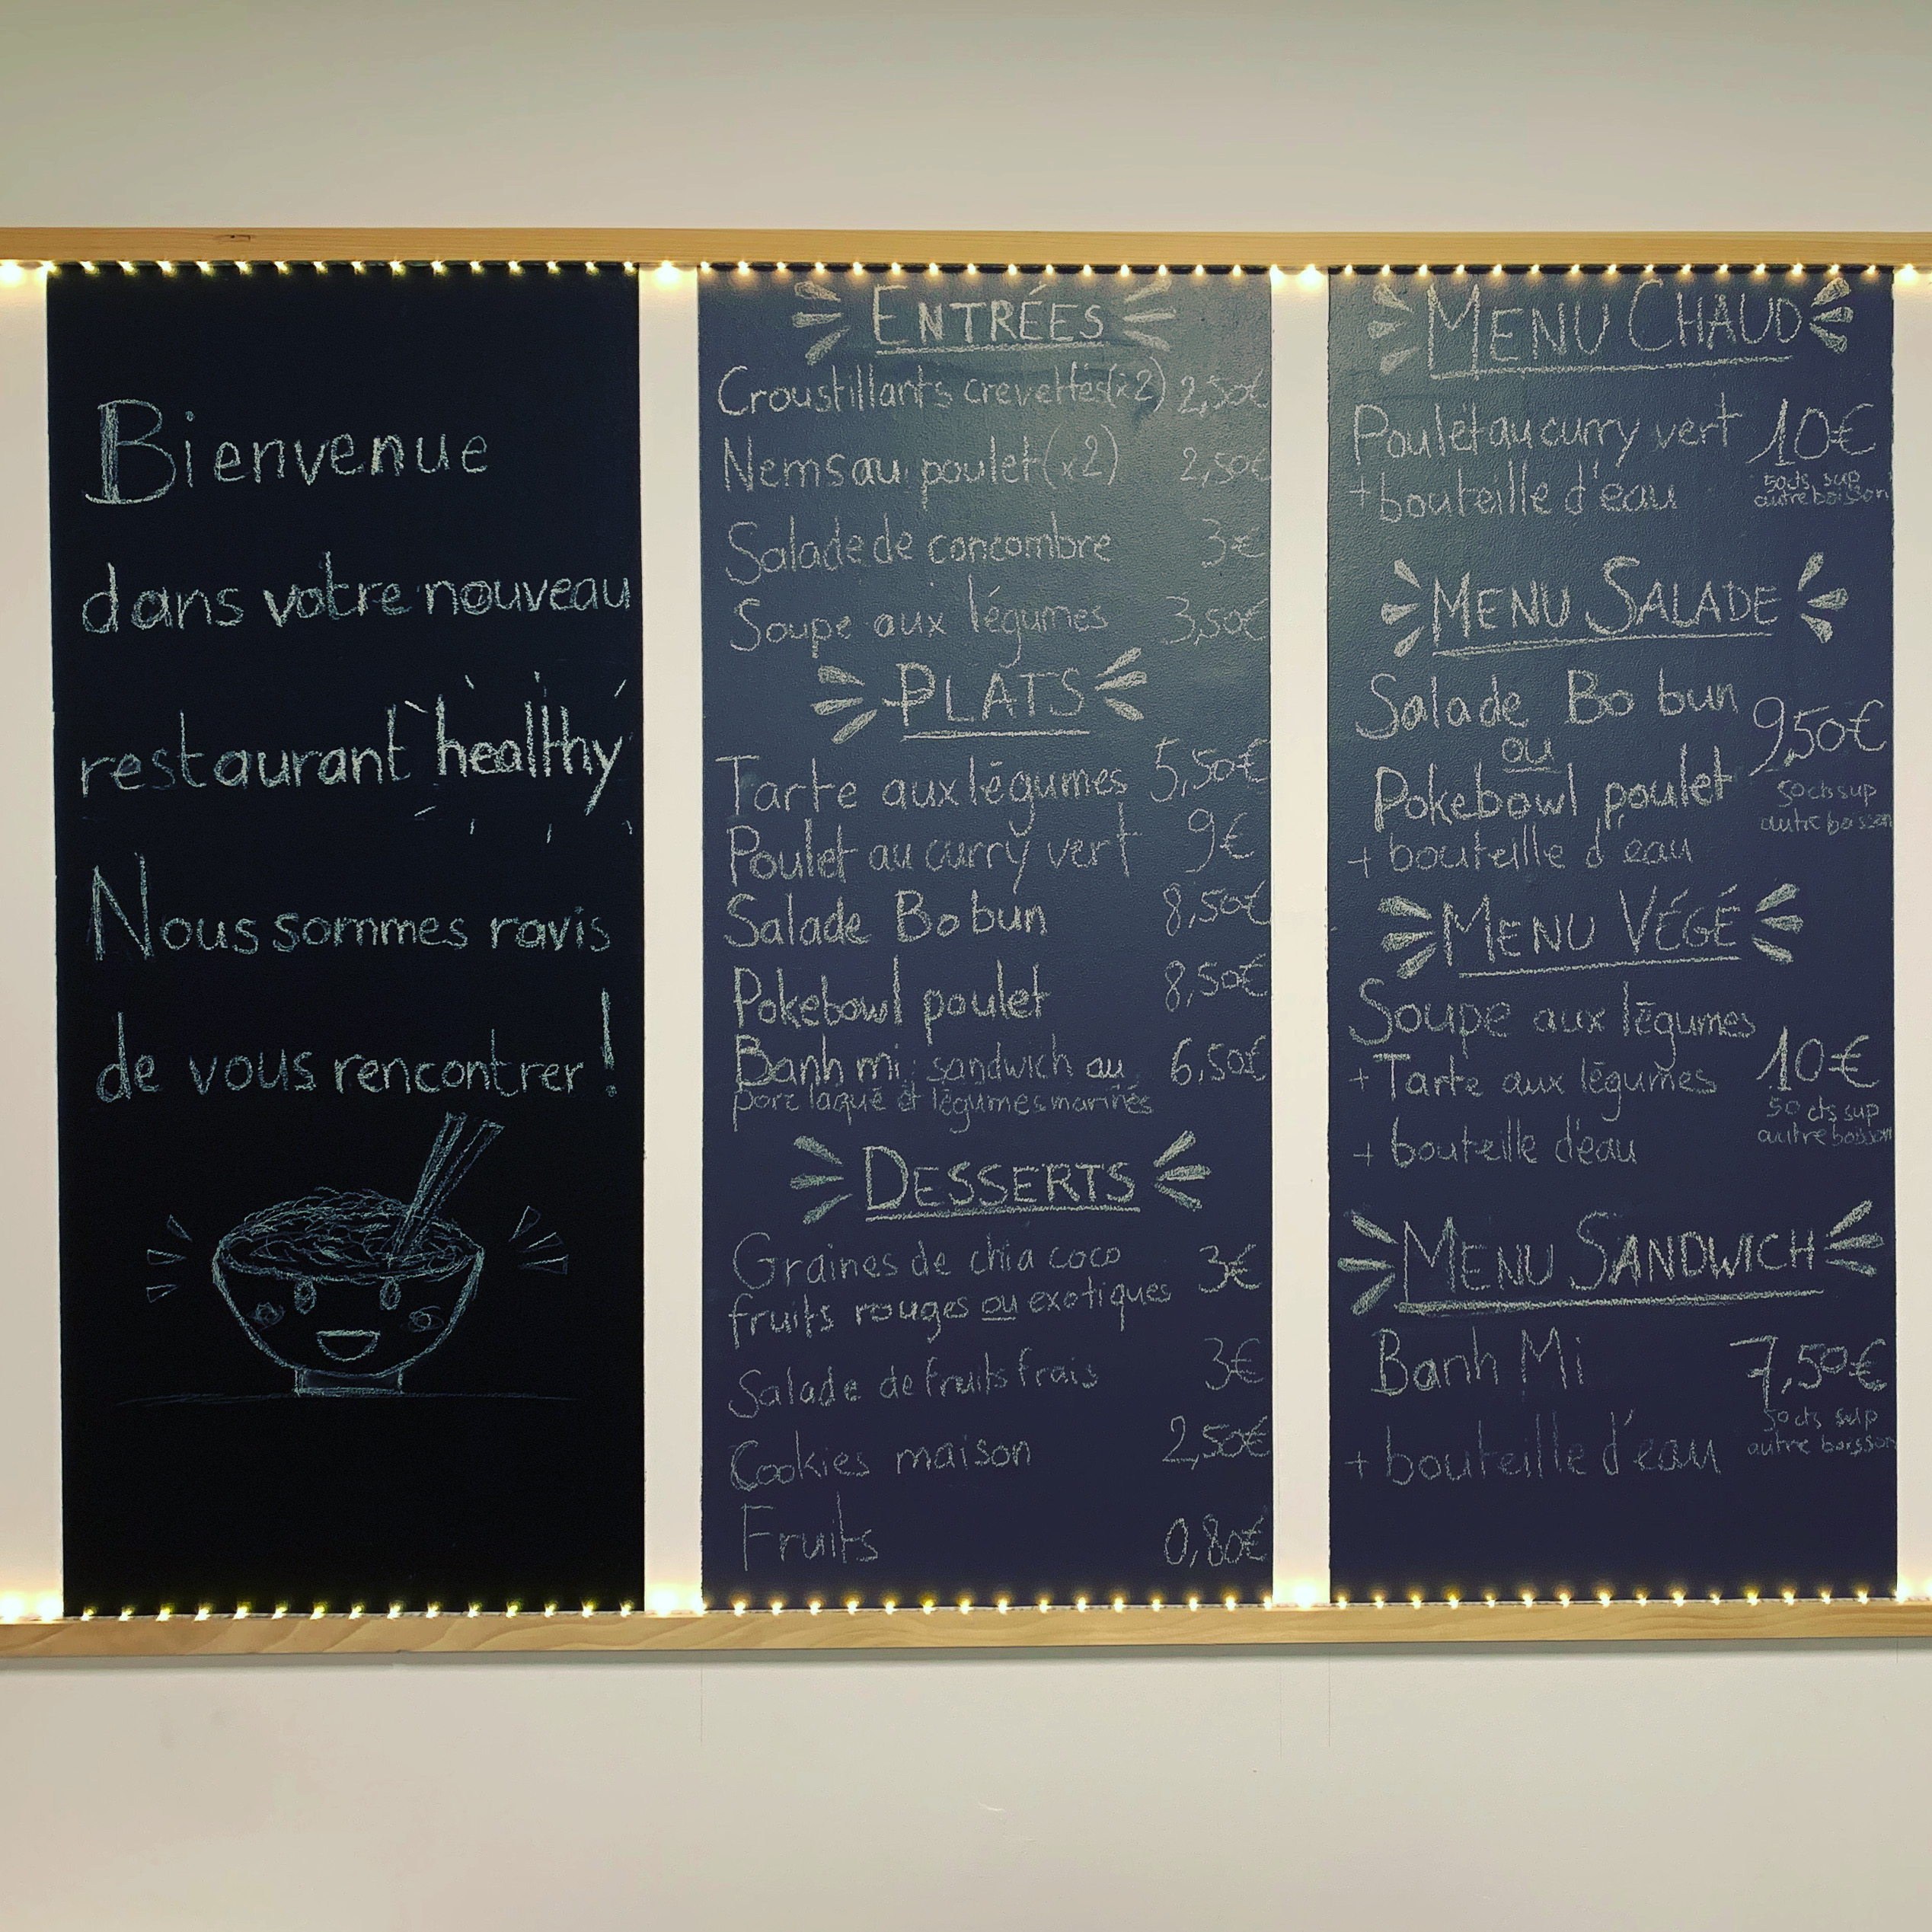 Bienvenue
dans votre nouveau
restaurant healthy
Nous sommes ravis
de vous rencontrer !
ENTRÉES
Croustillants crevettes (x2) 2,50€
Nems au poulet (x2) 2,50€
Salade de concombre 3€
Soupe aux légumes 3,50€
PLATS
Tarte aux légumes 5,50€
Poulet au curry vert 9€
Salade Bo bun 8,50€
Pokebowl poulet 8,50€
Banh mi : sandwich au 6,50€
porc laqué et légumes marinés
DESSERTS
Graines de chia coco 3€
fruits rouges ou exotiques
Salade de fruits frais 3€
Cookies maison 2,50€
Fruits 0,80€
MENU CHAUD
Poulet au curry vert 10€
+ bouteille d'eau 50cts sup
autre boisson
MENU SALADE
Salade Bo bun 9,50€
ou
Pokebowl poulet 50cts sup
+ bouteille d'eau autre boisson
MENU VÉGÉ
Soupe aux légumes
+ Tarte aux légumes 10€
50 cts sup
+ bouteille d'eau autre boisson
MENU SANDWICH
Banh Mi 7,50€
50 cts sup
+ bouteille d'eau autre boisson